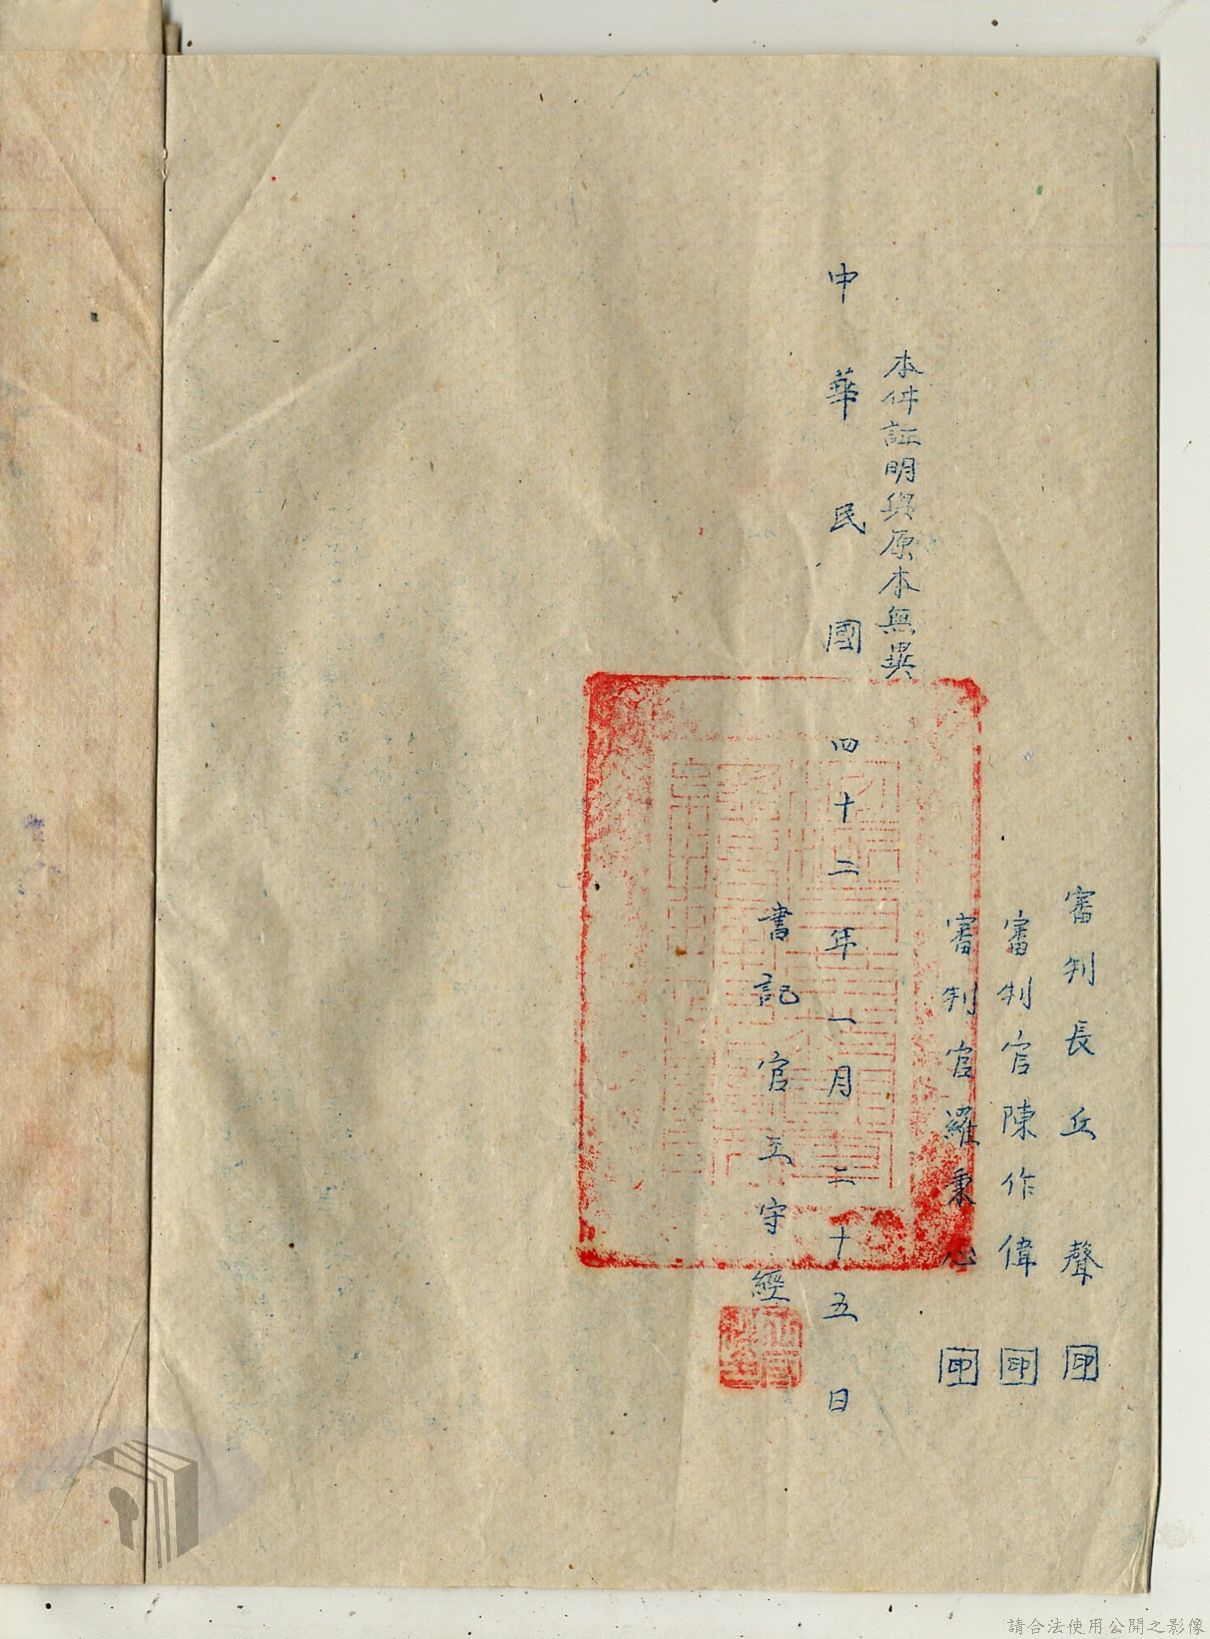 審判長丘聲印
審判官陳作偉印
審判官羅秉心印
本件証明與原本無異
中華民國四十二年一月二十五日
書記官王守經
請合法使用公開之影像